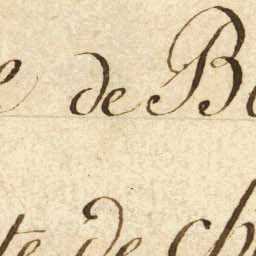 e de Be
te de ch